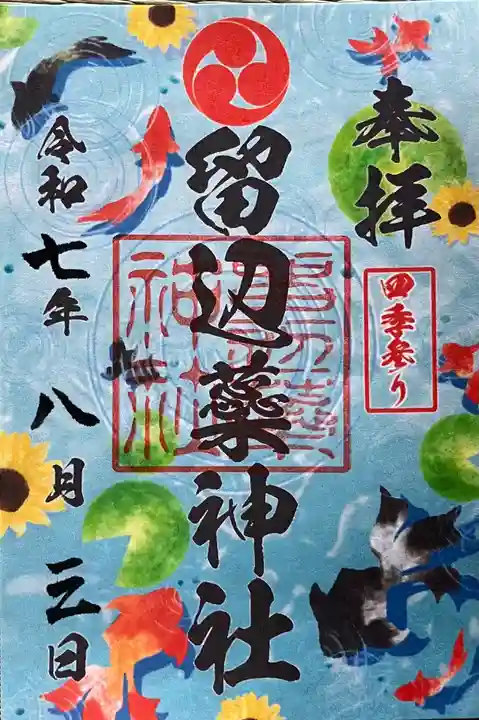 奉拝
四季参り
留辺蘂神社
令和七年八月三日